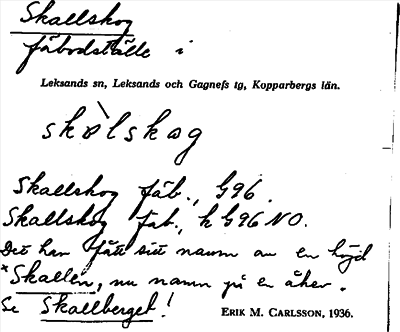 Skallskog
fäbodställe i
Leksands sn, Leksands och Gagnefs tg, Kopparbergs län.
skàlskog
Skallskog fäb., G96.
Skallskog fäb., k G96 NO.
Det har fått sitt namn av en höjd
*Skallen, nu namn på en åker.
Se Skallberget!
ERIK M. CARLSSON, 1936.